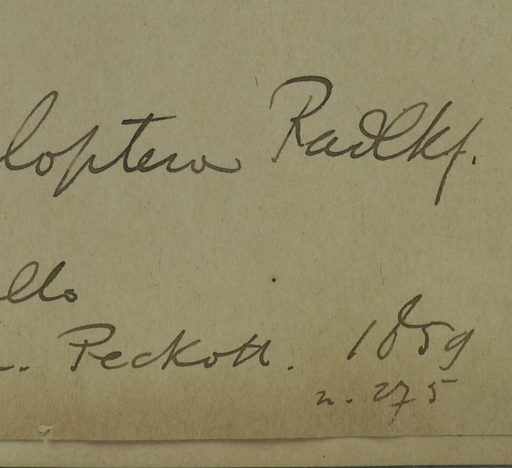 loptera Radlkf.
ello
. Peckolt. 1859
n. 275